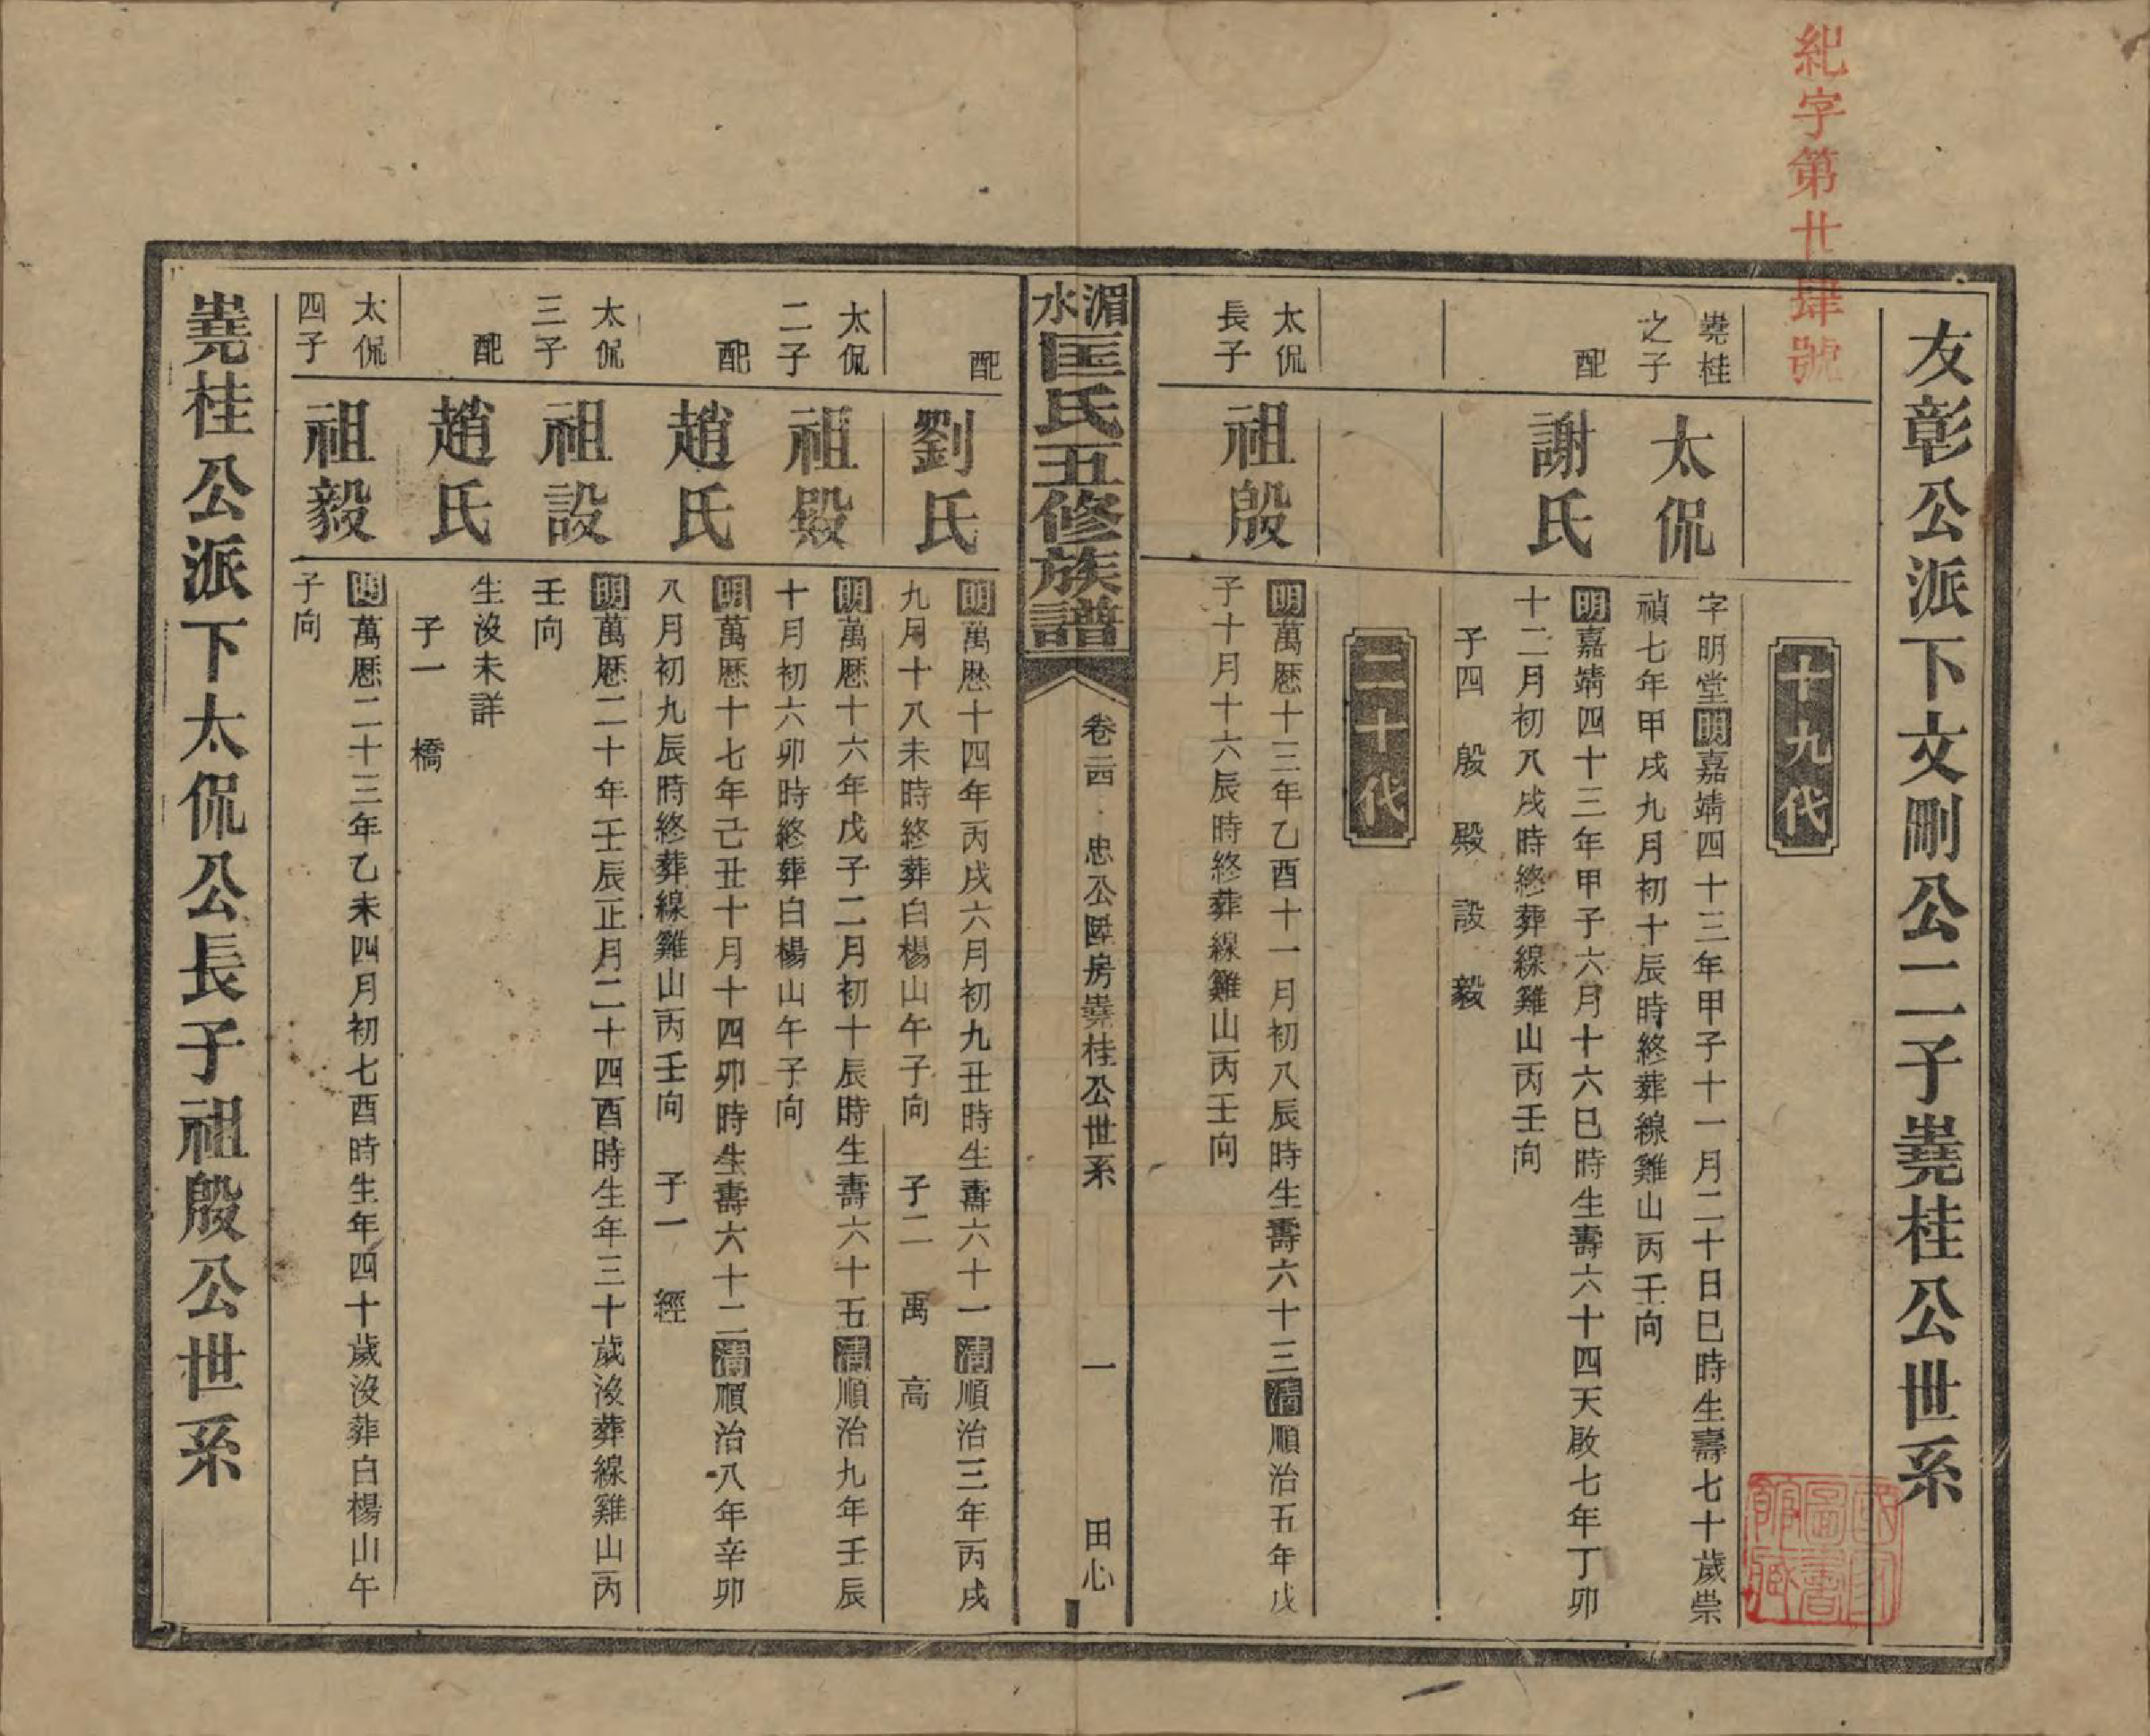 紀字第廿肆號
友彰公派下文剛公二子嶤桂公世系
十九代
嶤桂
之子
太侃
字明堂明嘉靖四十三年甲子十一月二十日巳時生壽七十歲崇
禎七年甲戌九月初十辰時終葬線雞山丙壬向
配
謝氏
明嘉靖四十三年甲子六月十六巳時生壽六十四天啟七年丁卯
十二月初八戌時終葬線雞山丙壬向
子四 殷 殿 設 毅
二十代
太侃
長子
祖殷
明萬歷十三年乙酉十一月初八辰時生壽六十三清順治五年戊
子十月十六辰時終葬線雞山丙壬向
湄水匡氏五修族譜
卷二四 忠公陞房嶤桂公世系 一 田心
配
劉氏
明萬歷十四年丙戌六月初九丑時生壽六十一清順治三年丙戌
九月十八未時終葬白楊山午子向 子二 萬 高
太侃
二子
祖殿
明萬歷十六年戊子二月初十辰時生壽六十五清順治九年壬辰
十月初六卯時終葬白楊山午子向
配
趙氏
明萬歷十七年己丑十月十四卯時生壽六十二清順治八年辛卯
八月初九辰時終葬線雞山丙壬向 子一 經
太侃
三子
祖設
明萬歷二十年壬辰正月二十四酉時生年三十歲沒葬線雞山丙
壬向
配
趙氏
生沒未詳
子一 橋
太侃
四子
祖毅
明萬歷二十三年乙未四月初七酉時生年四十歲沒葬白楊山午
子向
嶤桂公派下太侃公長子祖殷公世系
國家
圖書
館藏